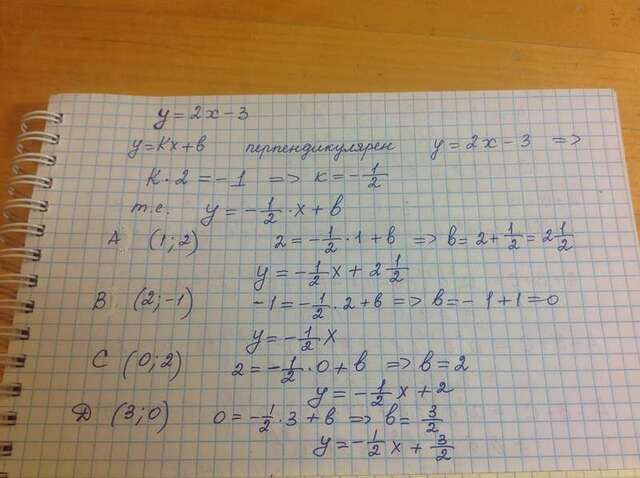 y = 2x - 3
y = Kx + в перпендикулярен y = 2x - 3 =>
K · 2 = -1 => K = -1/2
т.е. y = -1/2 · x + в
A (1; 2) 2 = -1/2 · 1 + в => в = 2 + 1/2 = 2 1/2
y = -1/2 x + 2 1/2
B (2; -1) -1 = -1/2 · 2 + в => в = -1 + 1 = 0
y = -1/2 x
C (0; 2) 2 = -1/2 · 0 + в => в = 2
y = -1/2 x + 2
Д (3; 0) 0 = -1/2 · 3 + в => в = 3/2
y = -1/2 x + 3/2